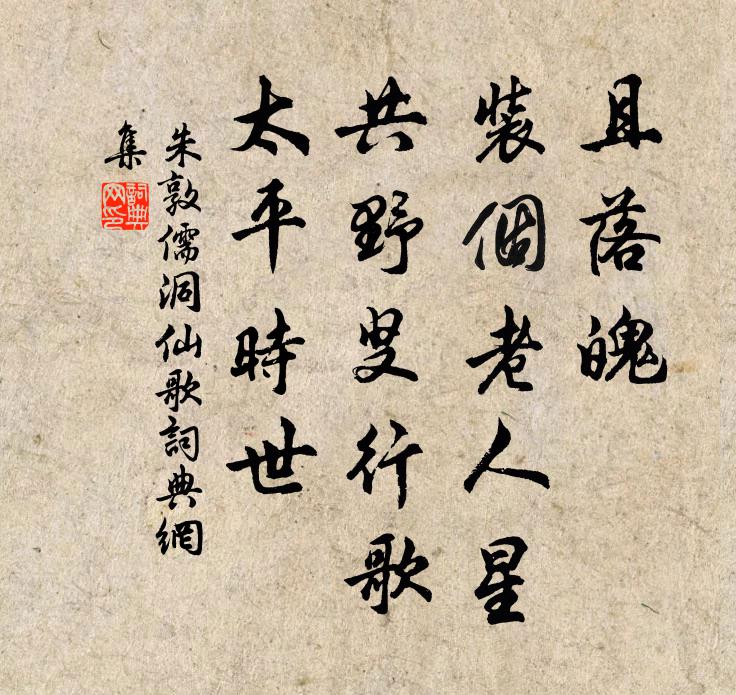 且落魄
裝個老人星
共野叟行歌
太平時世
朱敦儒洞仙歌詞典網
集
詞典
网印